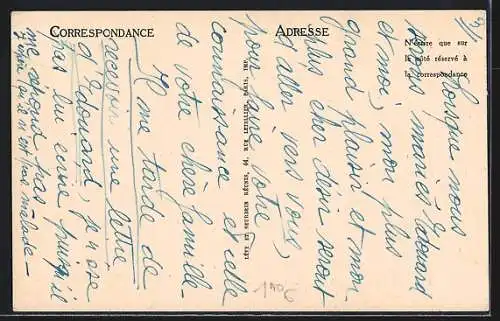 CORRESPONDANCE
ADRESSE
N'écrire que sur
le côté réservé à
la correspondance
LÉVY ET NEURDEIN RÉUNIS, 44, RUE LETELLIER, PARIS, IMP.
3/
Lorsque nous
serons mariés Edouard
et moi, mon plus
grand plaisir et mon
plus cher désir seront
d'aller vers vous,
pour faire votre
connaissance et celle
de votre chère famille.
Il me tarde de
recevoir une lettre
d'Edouard, je n'ose
pas lui écrire puisqu'il
me répond pas
s'il n'est pas malade